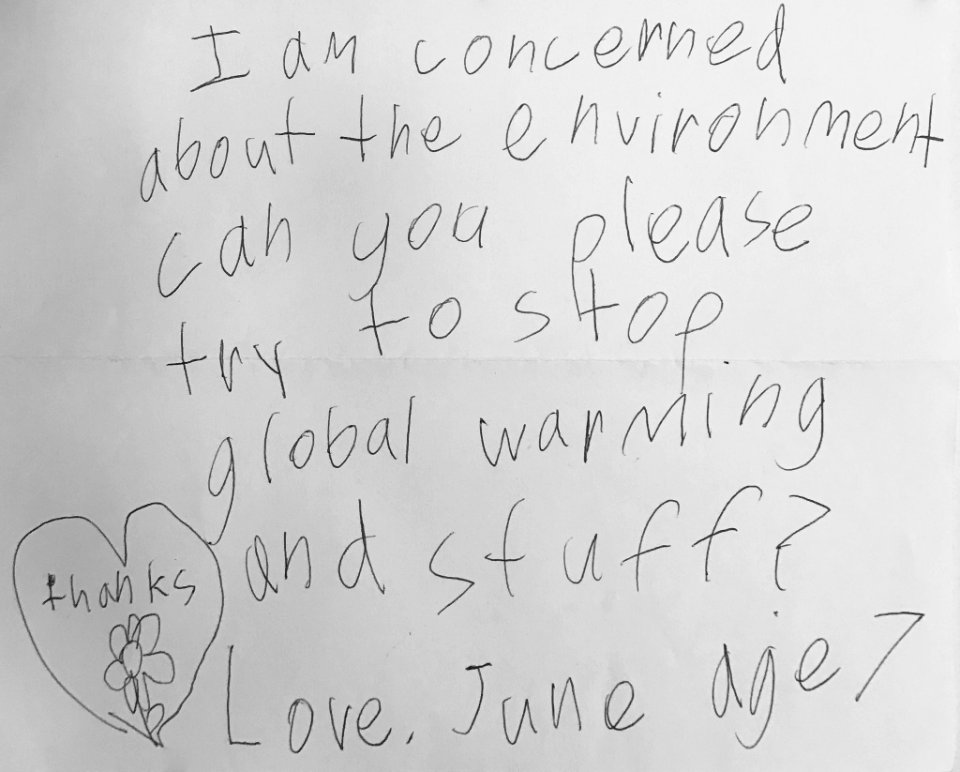 I am concerned
about the environment
can you please
try to stop
global warming
and stuff?
thanks
Love, June age 7